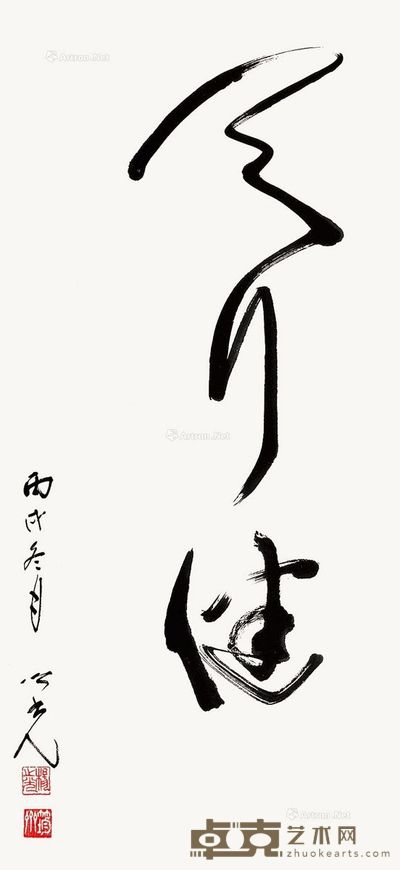 天行健
丙戌冬月
Artron.Net
Artron.Net
Artron.Net
卓克艺术网
zhuokearts.com